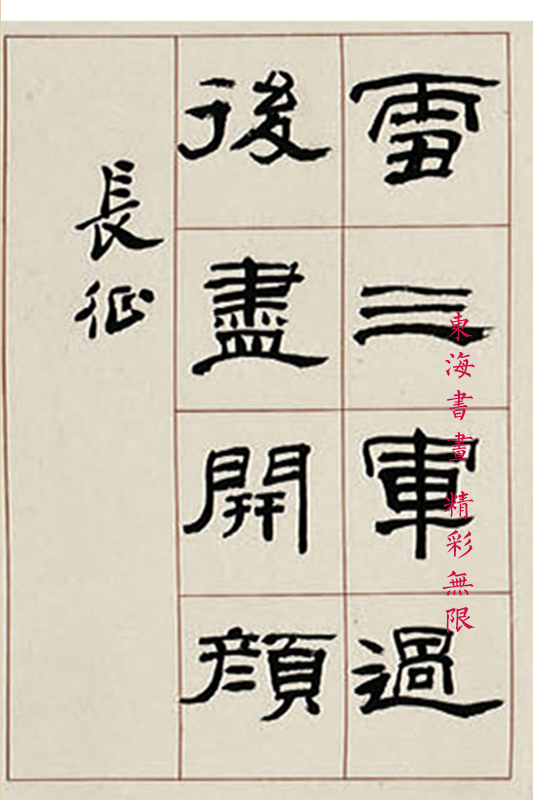 雪三軍過
後盡開顏
長征
東海書畫 精彩無限